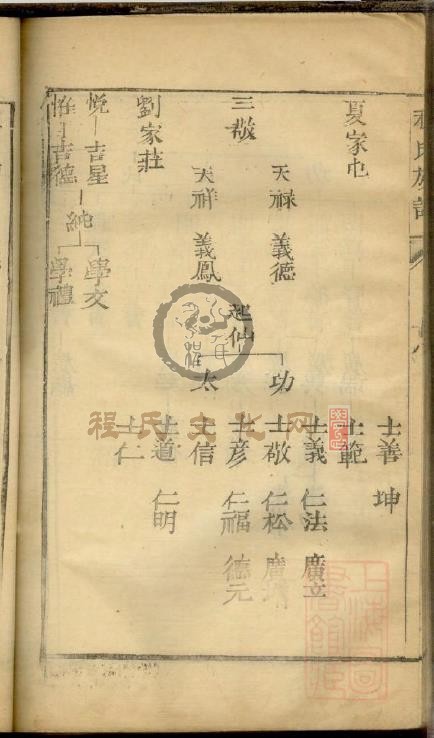 程氏族譜
士善 坤
夏家屯
士範
士義 仁法 廣立
天祿 義德
功
士敬 仁松 廣
三敬
起仙
士彥 仁福 德元
天祥 義鳳
太
士信
劉家莊
士道 仁明
士仁
悅 吉星
純
學文
吉德
學禮
程氏文化网
上海圖書館藏